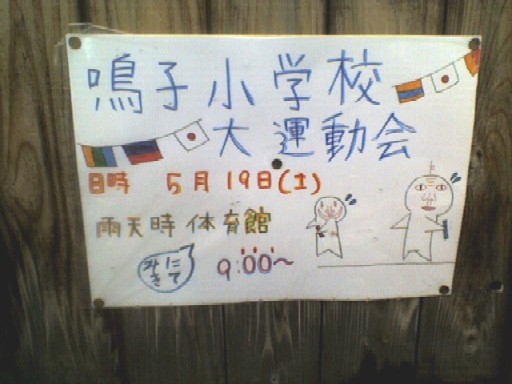 鳴子小学校
大運動会
日時 5月19日(土)
雨天時 体育館
にて
9:00〜